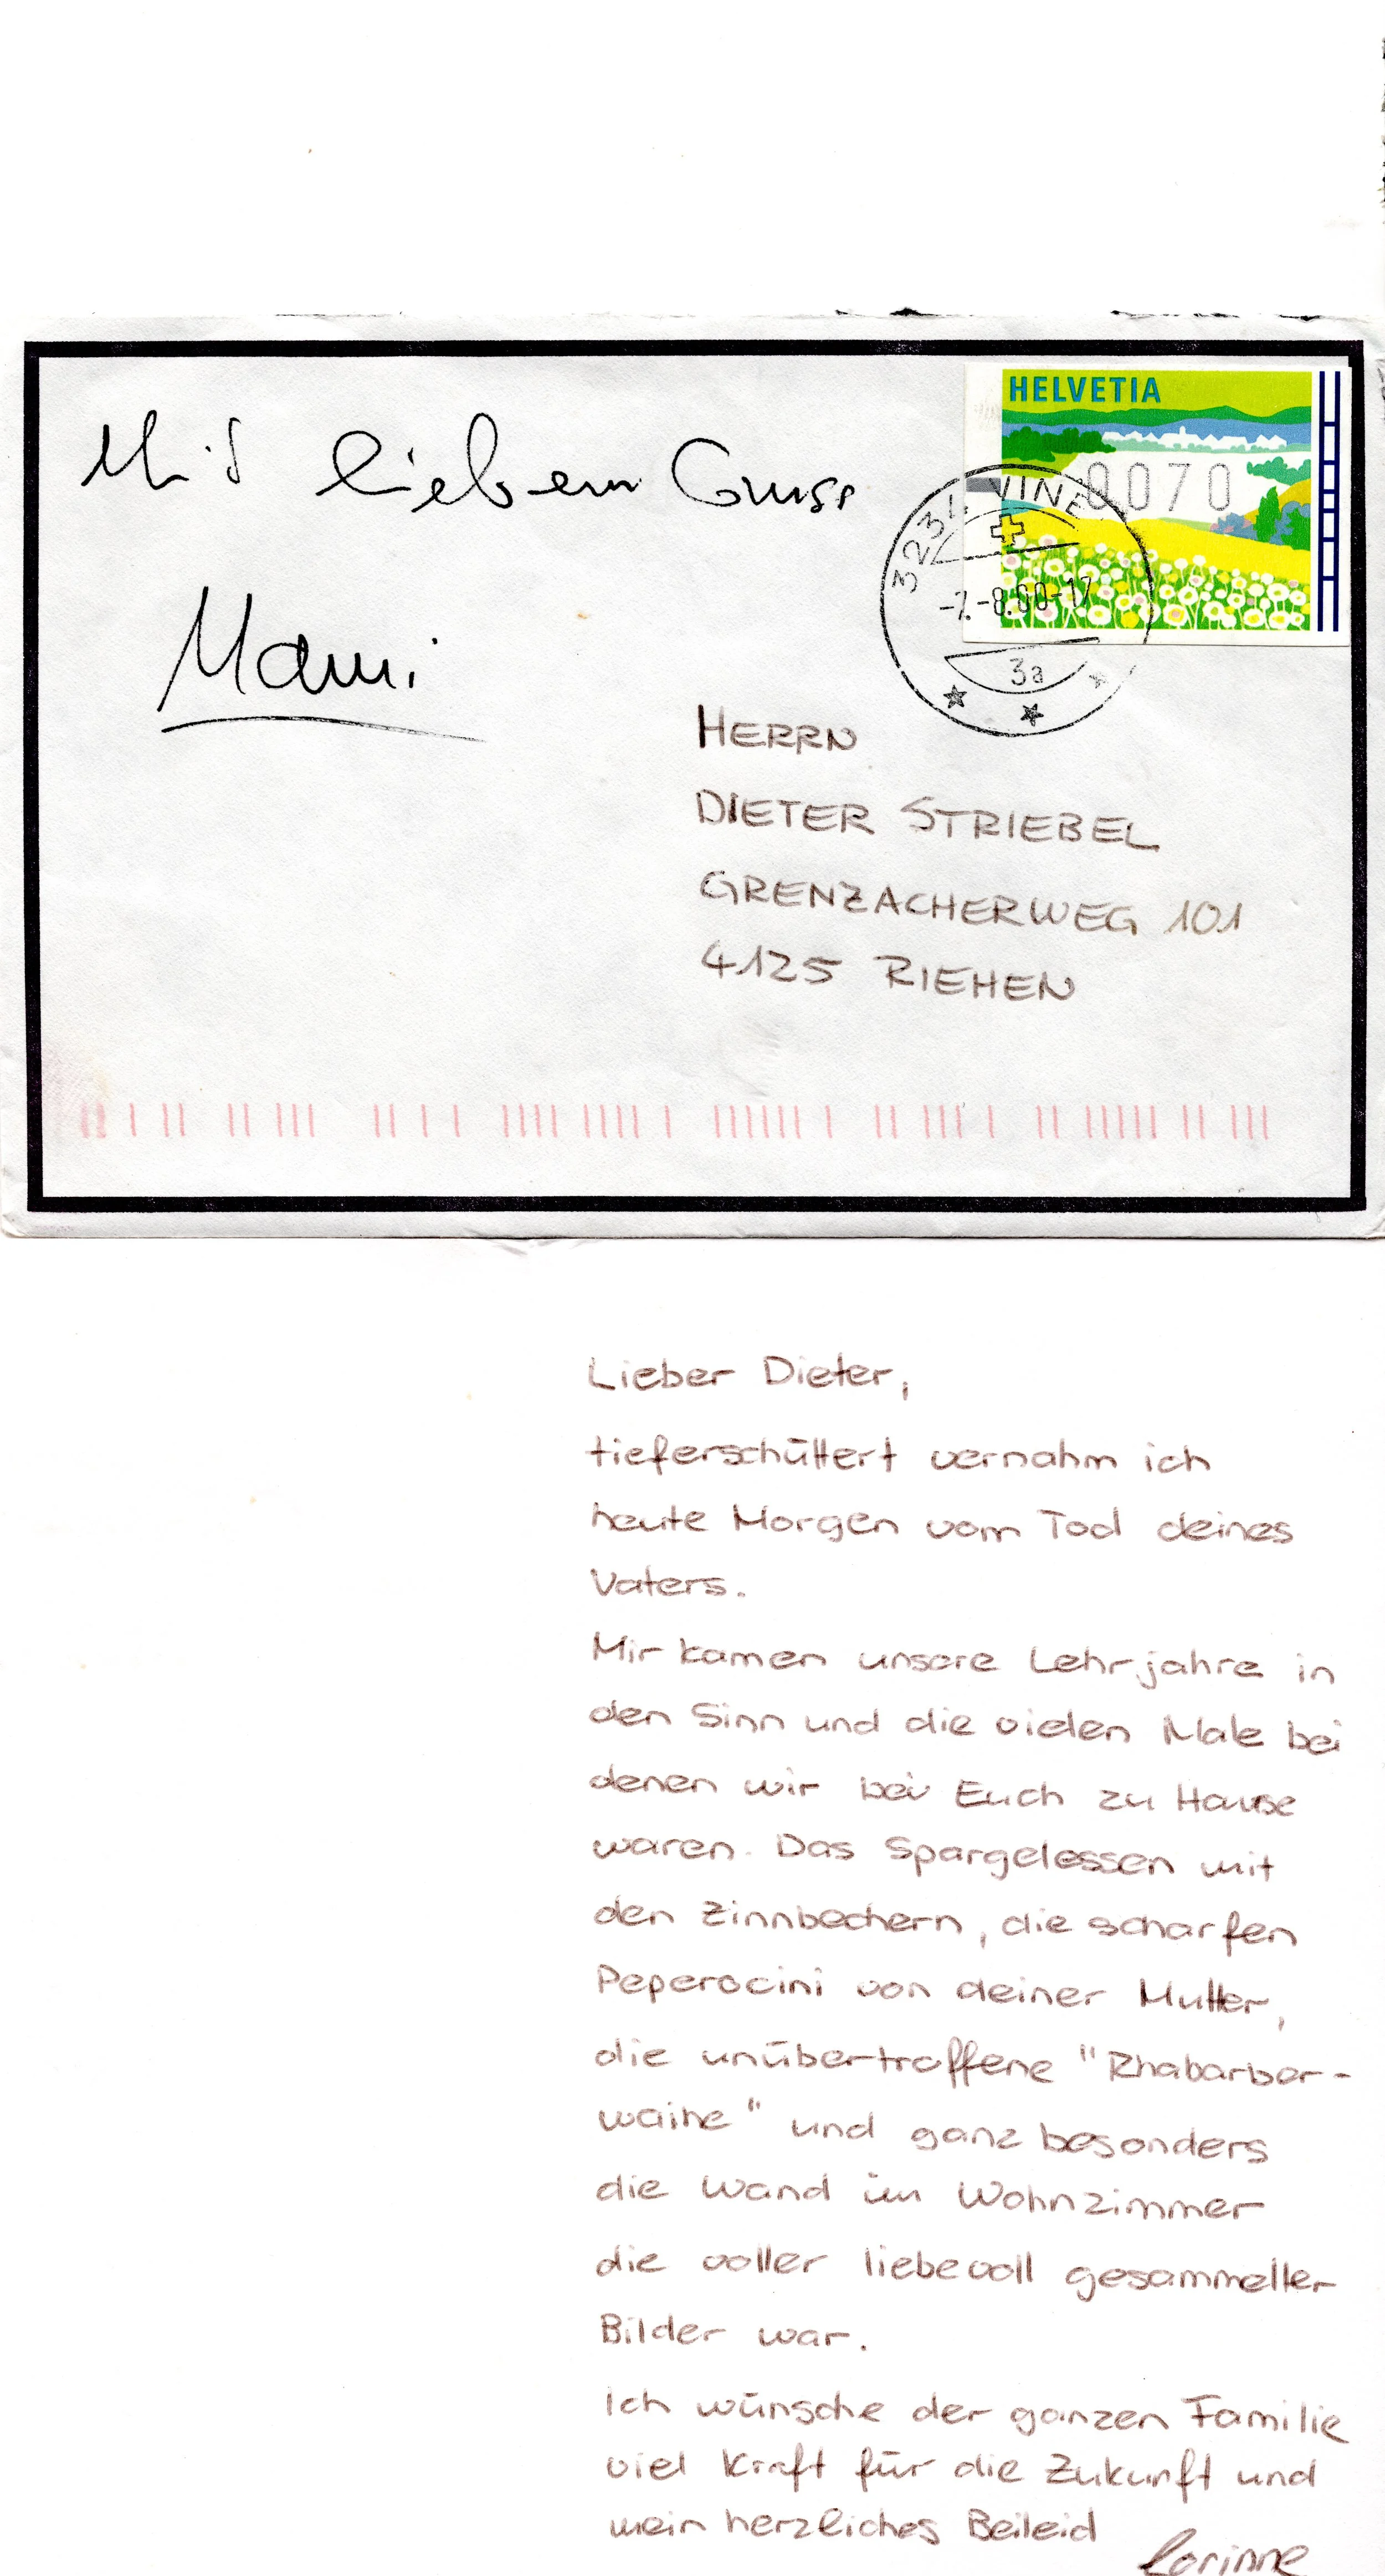 Mit liebem Gruss
Mami
HELVETIA
0070
3232 VINE
-7.-8.00-17
3a
HERRN
DIETER STRIEBEL
GRENZACHERWEG 101
4125 RIEHEN
Lieber Dieter,
tieferschüttert vernahm ich
heute Morgen vom Tod deines
Vaters.
Mir kamen unsere Lehrjahre in
den Sinn und die vielen Male bei
denen wir bei Euch zu Hause
waren. Das Spargelessen mit
den Zinnbechern, die scharfen
Peperocini von deiner Mutter,
die unübertroffene "Rhabarber-
waihe" und ganz besonders
die Wand im Wohnzimmer
die voller liebevoll gesammelter
Bilder war.
Ich wünsche der ganzen Familie
viel Kraft für die Zukunft und
mein herzliches Beileid
Corinne